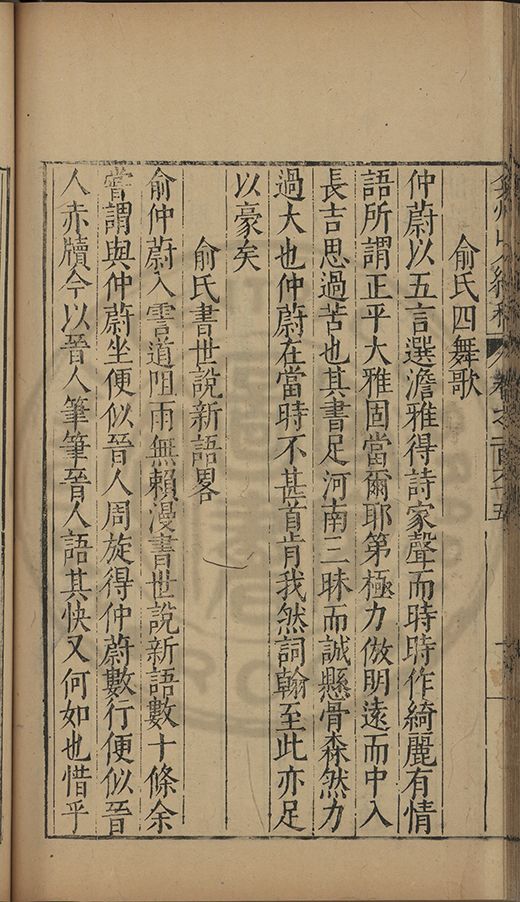 俞氏四舞歌
仲蔚以五言選澹雅得詩家聲而時時作綺麗有情
語所謂正平大雅固當爾耶第極力倣明遠而中入
長吉思過苦也其書足河南三昧而誠懸骨森然力
過大也仲蔚在當時不甚首肯我然詞翰至此亦足
以豪矣
俞氏書世說新語畧
俞仲蔚入霅道阻雨無賴漫書世說新語數十條余
嘗謂與仲蔚坐便似晉人周旋得仲蔚數行便似晉
人赤牘今以晉人筆筆晉人語其快又何如也惜乎